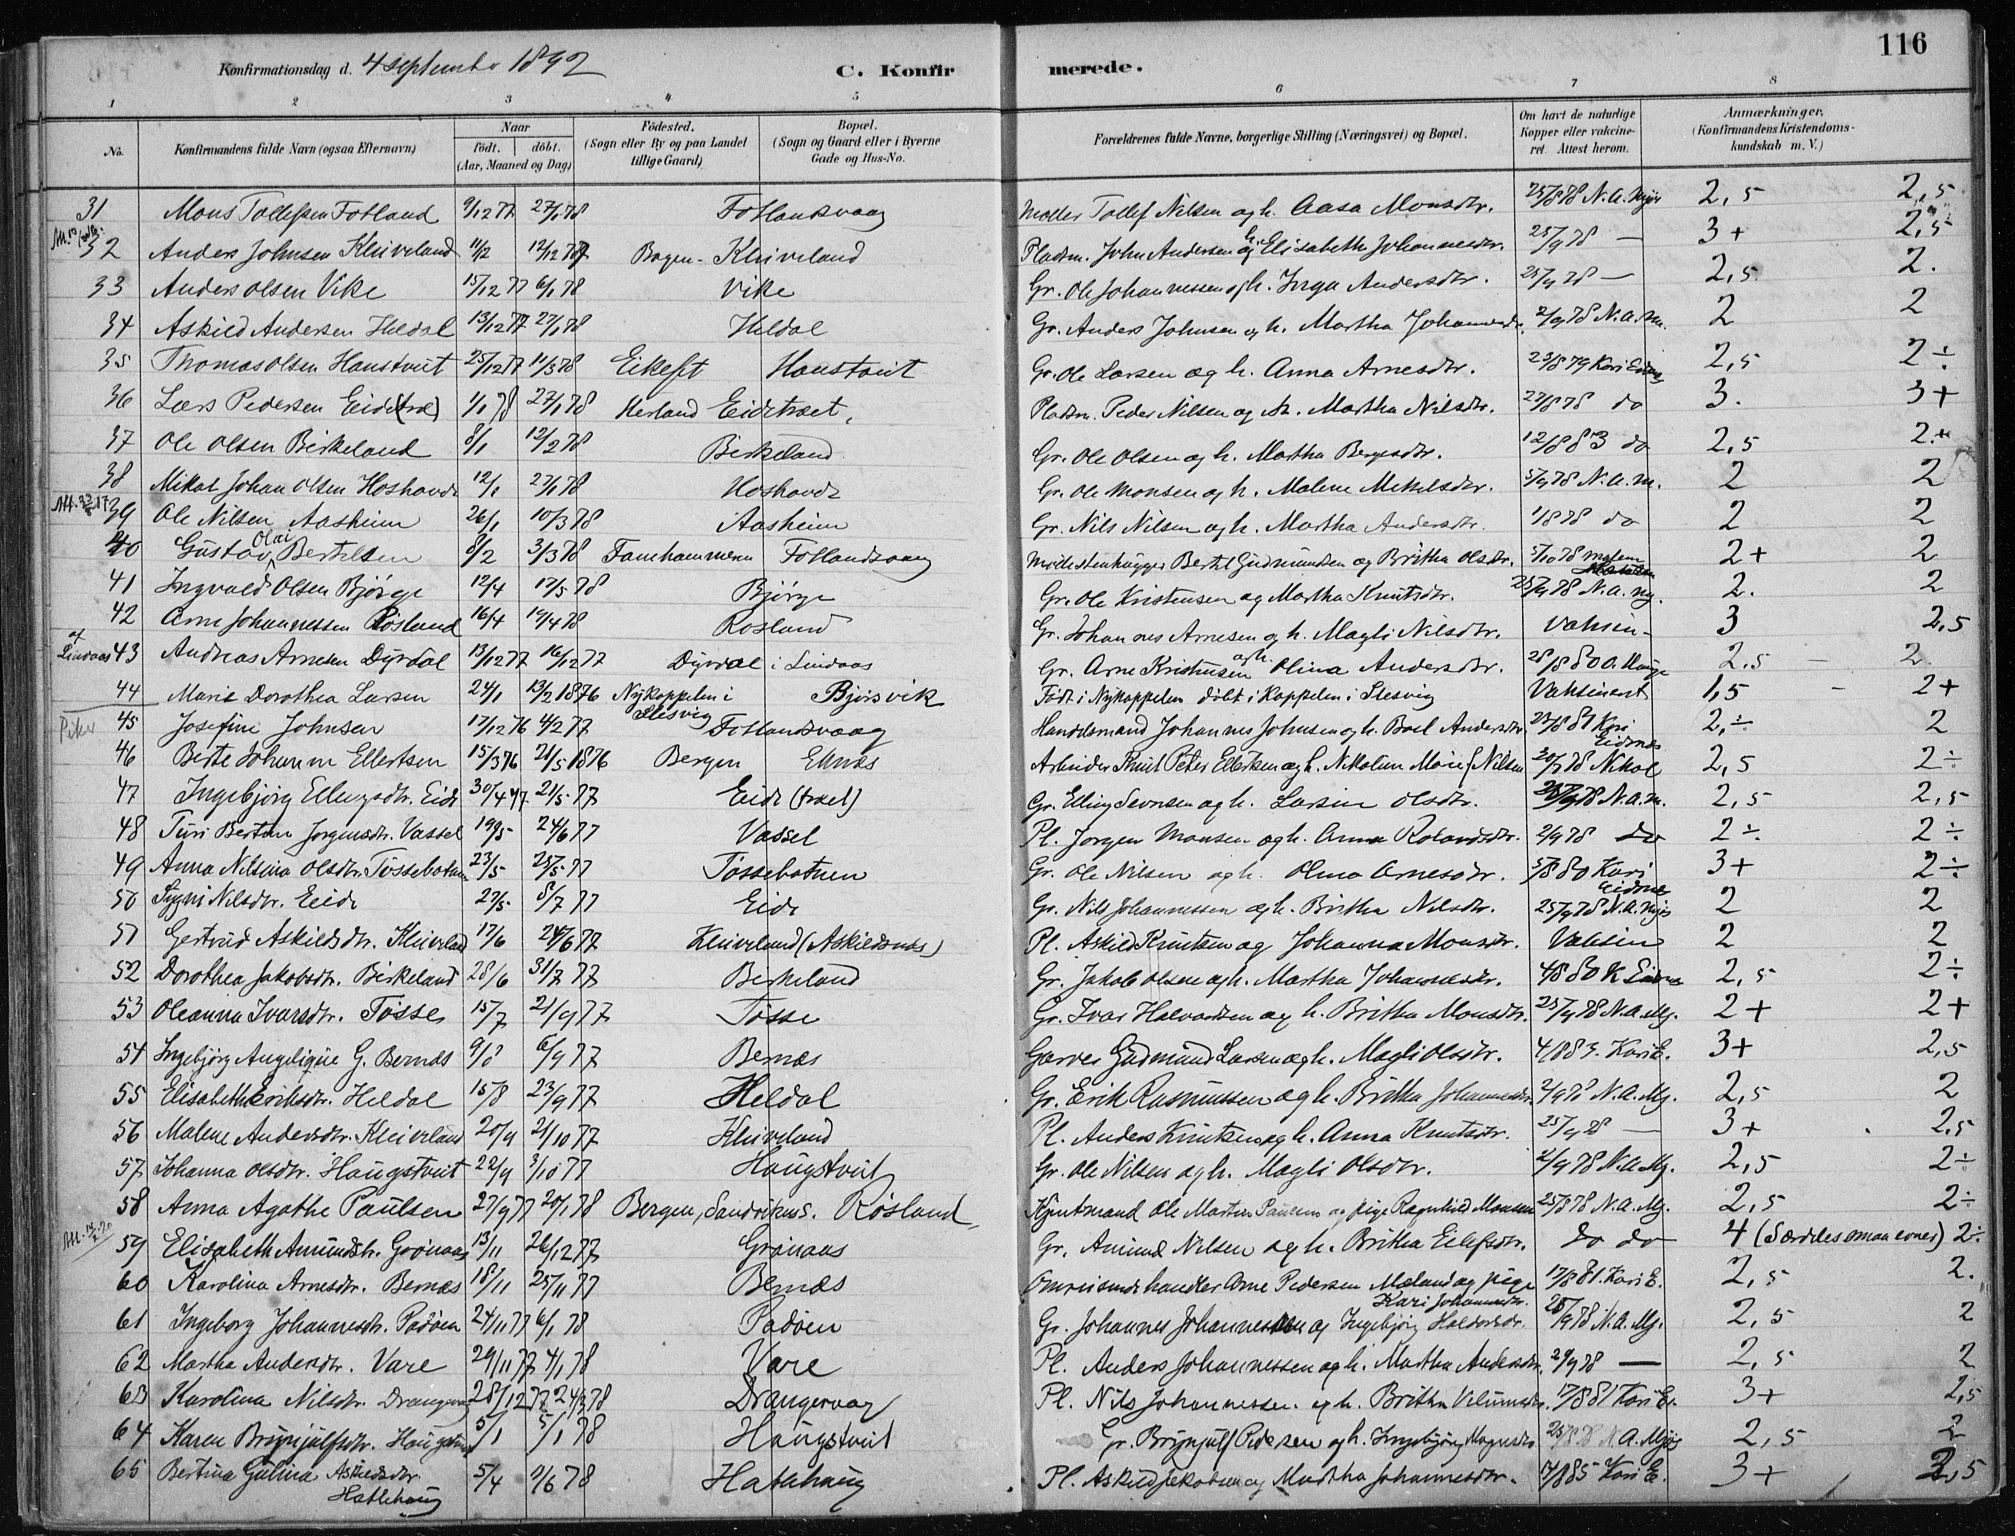 116
Konfirmationsdag d. 4 september 1892 C. Konfir merede.
1 2 3 4 5 6 7 8
No. Konfirmandens fulde Navn (ogsaa Efternavn) Naar født. døbt. (Aar, Maaned og Dag) Fødested. (Sogn eller By og paa Landet tillige Gaard) Bopæl. (Sogn og Gaard eller i Byerne Gade og Hus-No. Forældrenes fulde Navne, borgerlige Stilling (Næringsvei) og Bopæl. Om havt de naturlige Kopper eller vakcineret. Attest herom. Anmærkninger, (Konfirmandens Kristendomskundskab m. V.)
31 Mons Tollefsen Fotland 9/12 77 27/1 78 Fotlandsvaag Møller Tollef Nilsen og h. Aasa Monsdtr. 25/8 78 N. A. Mjøs 2,5 2,5
32 Anders Johnsen Kleiveland 11/2 12/12 77 Bergen - Kleiveland Pladsm. John Andersen og h. Elisabetha Johannesdtr. 25/9 78 — 3+ 2,5
33 Anders Olsen Vike 15/12 77 6/1 78 Vike Gr. Ole Johannessen og h. Inga Andersdtr. 25/9 78 — 2,5 2.
34 Askild Andersen Heldal 13/12 77 27/1 78 Heldal Gr. Anders Johnsen og h. Martha Johannesdr. 2/9 78 N. A. M. 2 2
35 Thomas Olsen Haustveit 25/12 77 11/3 78 Eikefet Haustveit Gr. Ole Larsen og h. Anna Arnesdtr. 23/8 79 Kari Eidnes 2,5 2÷
36 Lars Pedersen Eide(træ) 1/1 78 27/1 78 Herland Eidetræet, Pladsm. Peder Nilsen og h. Martha Nilsdtr. 27/8 78 do 3. 3+
37 Ole Olsen Birkeland 8/1 12/2 78 Birkeland Gr. Ole Olsen og h. Martha Bergesdtr. 12/8 83 do 2,5 2+
38 Mikal Johan Olsen Hoshovde 12/1 27/1 78 Hoshovde Gr. Ole Monsen og h. Malene Mikkelsdtr. 5/9 78 N. A. M. 2 2
39 Ole Nilsen Aasheim 26/1 10/3 78 Aasheim Gr. Nils Nilsen og h. Martha Andersdtr. 1/8 78 do 2 2
40 Gustav Olai Bertelsen 8/2 3/3 78 Fanehammeren Fotlandsvaag Møllestenhugger Bertel Gudmundsen og Britha Olsdtr. 5/10 78 2+ 2
41 Ingvald Olsen Bjørge 12/4 12/5 78 Bjørge Gr. Ole Kristensen og Martha Knutsdtr. 25/9 78 N. A. Mj. 2. 2
42 Arne Johannessen Røsland 16/4 19/4 78 Rosland Gr. Johannes Arnesen og h. Magli Nilsdtr. Vaksin- 3 2,5
af Lindaas 43 Andreas Arnesen Dyrdal 13/12 77 16/12 77 Dyrdal i Lindaas Gr. Arne Kristensen og h. Olina Andersdtr. 28/8 80 O. Hauge 2,5 — 2
44 Marie Dorothea Larsen 24/1 13/2 1876 Nykoppelen i Slesvig Bjørsvik Født i Nykoppelen døbt i Koppelen i Slesvig Vaksineret 1,5 — 2+
Piker 45 Josefine Johnsen 17/12 76 4/2 77 Fotlandsvaag Handelsmand Johannes Johnsen og h. Boel Andersdtr. 27/8 81 Kari Eidnes 2,÷ 2
46 Berte Johanne Ellertsen 15/3 76 21/5 1876 Bergen Elfnæs Arbeider Knut Peter Ellertsen og h. Nikoline Marie f Nilsen 20/9 78 Nikol 2,5 2÷
47 Ingebjørg Ellingsdtr. Eide 30/4 77 21/5 77 Eide (træet) Gr. Elling Sevrsen og h. Larsine Olsdtr. 25/9 78 N. A. M. 2,5 2,5
48 Turi Bertine Jørgensdtr. Vassel 19/5 24/6 77 Vassel Pl. Jørgen Monsen og h. Anna Rolandsdtr. 2/9 78 do 2÷ 2÷
49 Anna Nilsina Olsdtr. Tøssebotnen 23/5 25/5 77 Tøssebotnen Gr. Ole Nilsen og h. Olina Arnesdtr. 5/8 80 Kari Eidnes 3+ 2÷
50 Signi Nilsdtr. Eide 27/5 8/7 77 Eide Gr. Nils Johannessen og h. Britha Nilsdtr. 25/9 78 N. A. Mjøs 2 2
51 Gertrud Askildsdtr. Kleiveland 17/6 24/6 77 Kleiveland (Askildsnes) Pl. Askild Knutsen og Johanna Monsdtr. Vaksin 2 2
52 Dorothea Jakobsdtr. Birkeland 28/6 31/7 77 Birkeland Gr. Jakob Olsen og h. Martha Johannesdtr. 4/8 80 K Eidnes 2,5 2÷
53 Oleanna Ivarsdtr. Tösse 15/7 21/9 77 Tösse Gr. Ivar Halvardsen og h. Britha Monsdtr. 25/9 78 N. A. Mj. 2+ 2+
54 Ingebjørg Angelique G. Bernæs 9/8 6/9 77 Bernæs Garver Gudmund Larsen og h. Magli Olsdtr. 4/8 83. Kari E. 3+ 2,5
55 Elisabeth Eriksdtr. Heldal 15/8 23/9 77 Heldal Gr. Erik Rasmussen og h. Britha Johannesdtr. 2/9 78 N. A. Mj. 2,5 2
56 Malene Andersdtr. Kleiveland 20/9 21/10 77 Kleiveland Pl. Anders Knutsen og h. Anna Knutsdtr. 25/9 78 — 3+ 2,5
57 Johanna Olsdtr. Haugstveit 22/9 3/10 77 Haugstveit Gr. Ole Nilsen og h. Magli Olsdtr. 2/9 78 N. A. Mj. 2,5 2÷
58 Anna Agathe Paulsen 27/9 77 20/1 78 Bergen, Sandvikens. Røsland, Kjøbmand Ole Martin Paulsen og pige Ragnhild Monsen 25/8 78 N. A. Mj. 2,5 2÷
59 Elisabeth Amundsdtr. Grønaas 13/11 26/12 77 Grønaas Gr. Amund Nilsen og h. Britha Eilefsdtr. do do 4 (Særdeles smaa evner) 2÷
60 Karolina Arnesdtr. Bernæs 18/11 25/11 77 Bernæs Omreisende handler Arne Pedersen Mæland og pige Kari Johannesdtr. 17/8 81. Kari E. 2,5 2.
61 Ingeborg Johannesdtr. Padøen 24/11 77 6/1 78 Padøen Gr. Johannes Johannessen og Ingebjørg Haldorsdtr. 25/9 78 N. A. Mj. 2,5 2
62 Martha Andersdtr. Vare 29/11 77 4/1 78 Vare Pl. Anders Johannessen og h. Martha Andersdtr. 29/9 78 — 2,5 2
63 Karolina Nilsdtr. Drangevaag 28/12 77 24/3 78 Drangevaag Pl. Nils Johannessen og h. Britha Velumsdtr. 17/8 81 Kari E. 3+ 2,5
64 Karen Brynjulfsdtr. Haugstveit 5/1 5/1 78 Haugstveit Gr. Brynjulf Pedersen og h. Ingebjørg Magnesdtr. 25/8 78 N. A. Mjøs 2,5 2
65 Bertina Gulina Askildsdtr. Hatlehaug 5/4 9/6 78 Hatlehaug Pl. Askild Jakobsen og Martha Johannesdtr. 17/8 85 Kari E. 3+ 2,5